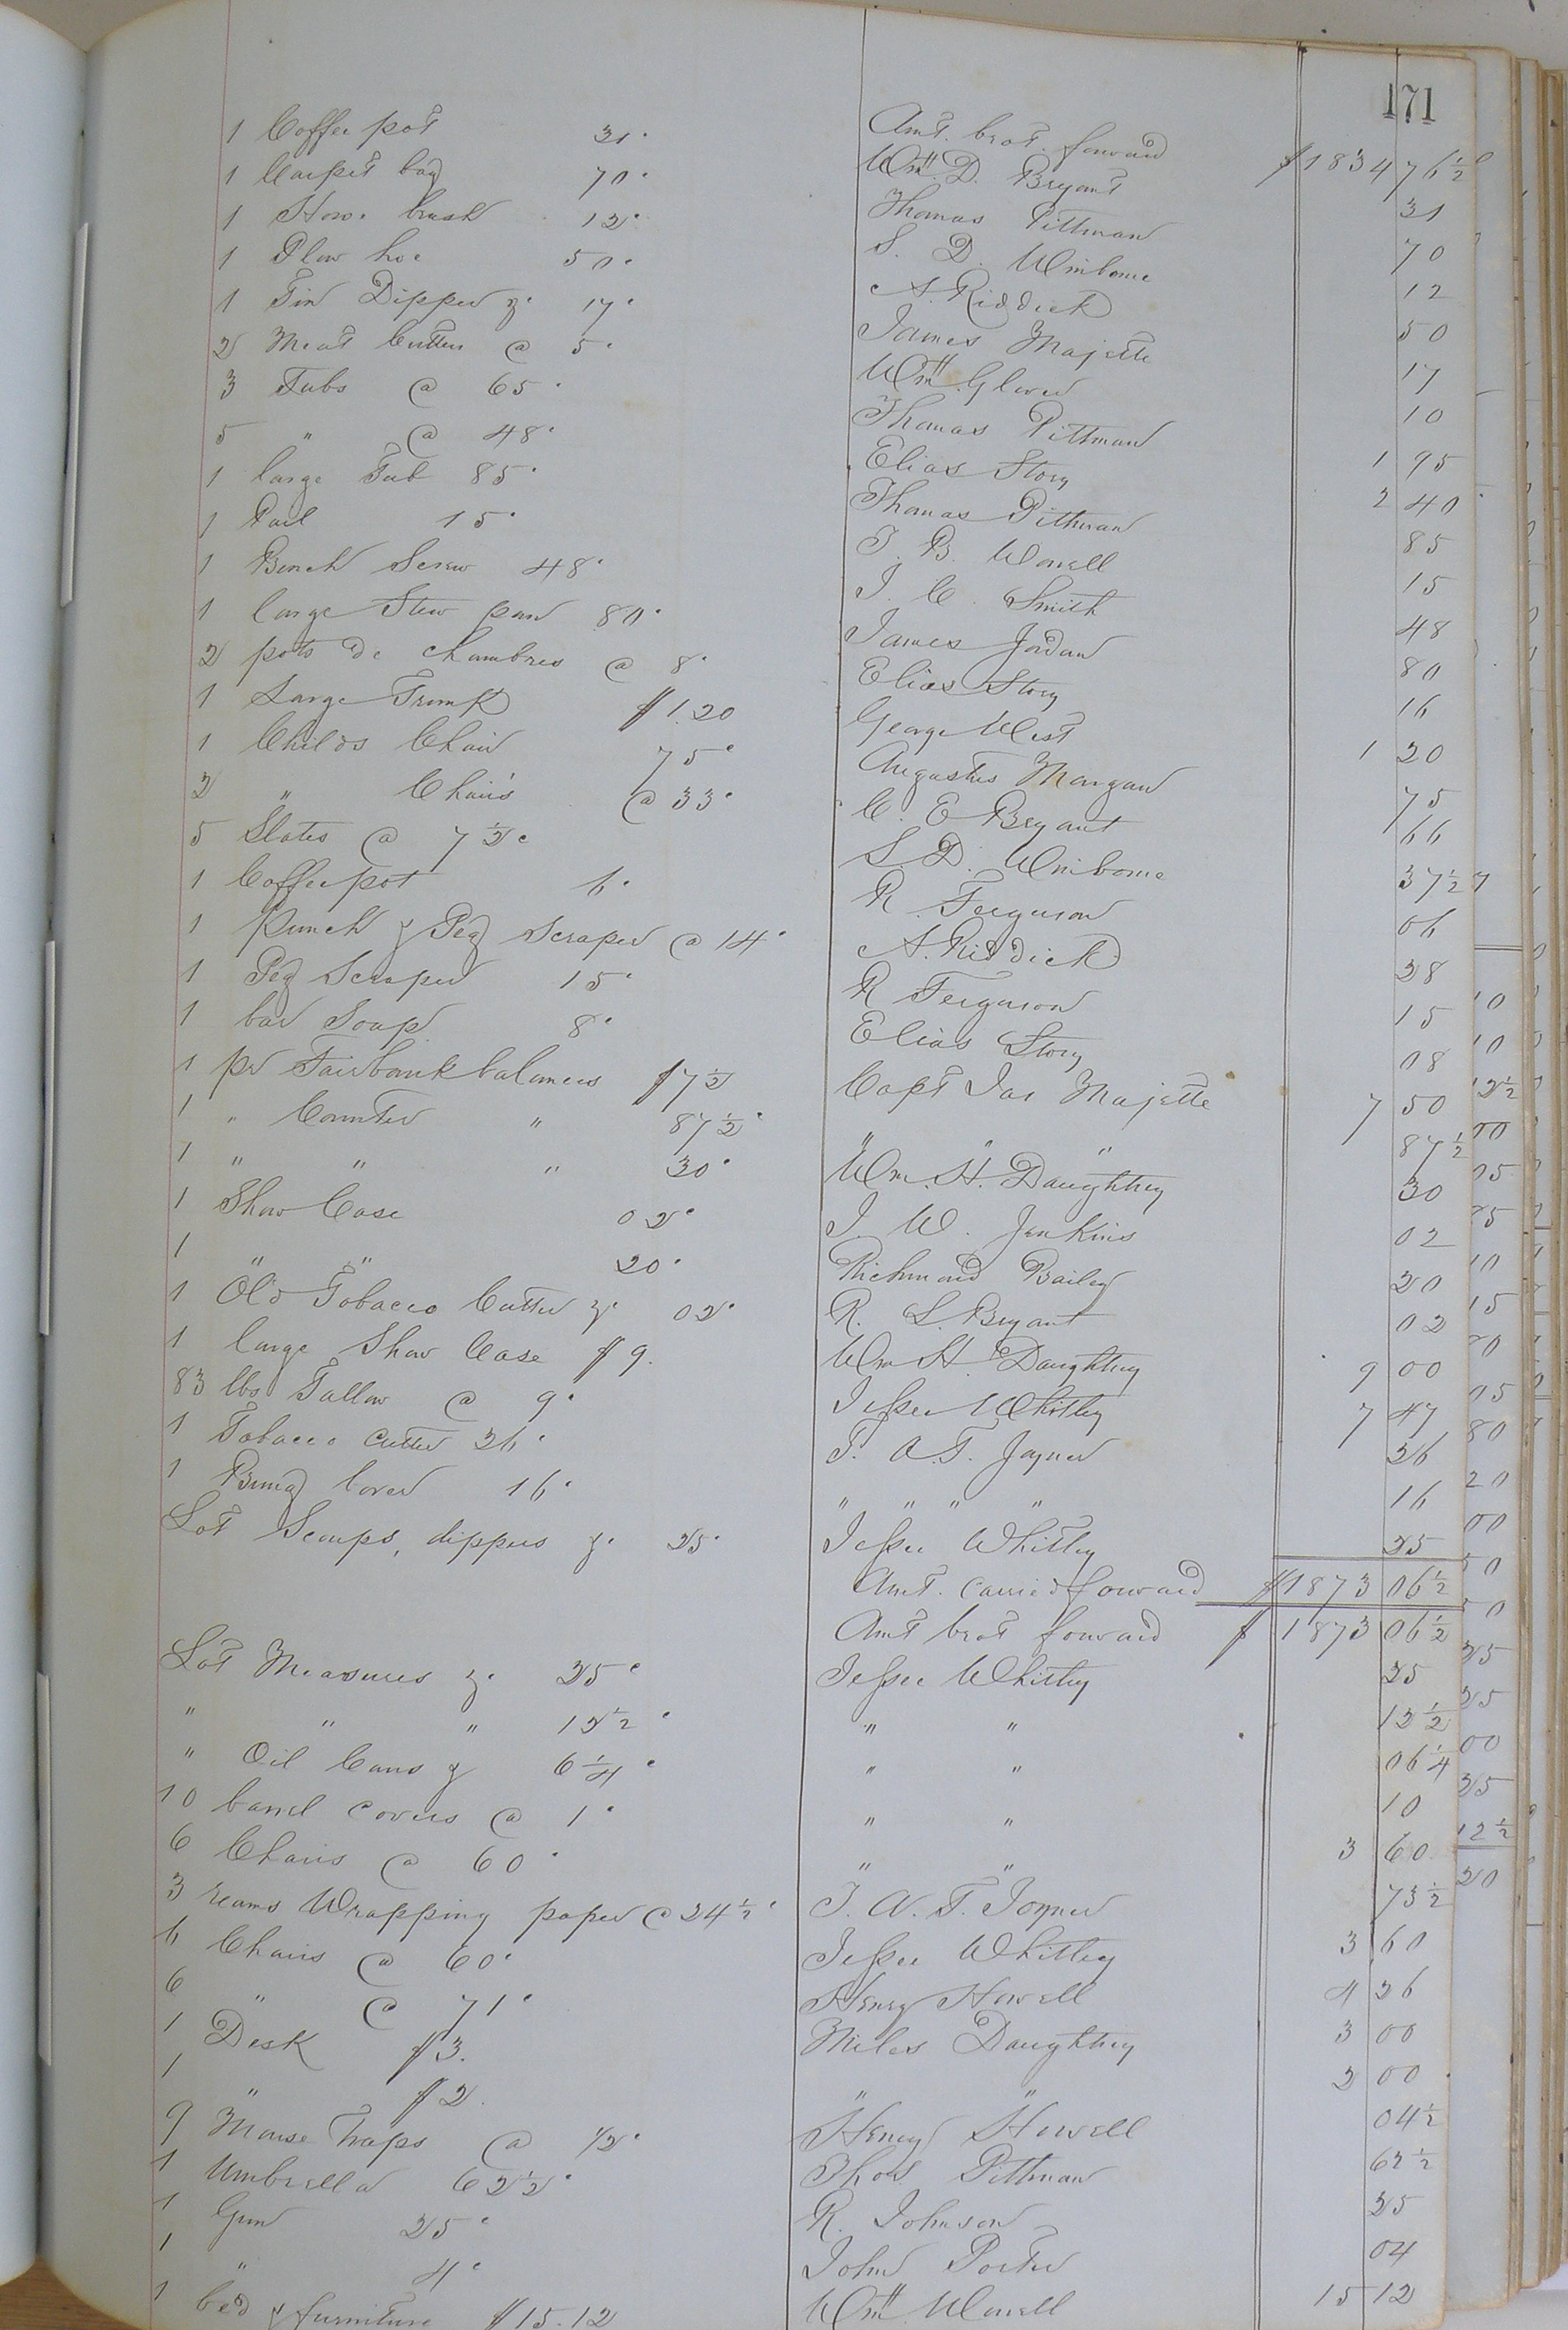 171
Amt. brot. forward $1834 76½
1 Coffee pot 31c Wm. D. Bryant 31
1 Carpet bag 70c Thomas Pittman 70
1 Horse brush 12c S. D. Winborne 12
1 Plow hoe 50c A. Riddick 50
1 Tin Dipper &c 17c James Majette 17
2 Meat Cutters @ 5c Wm. Glover 10
3 Tubs @ 65c Thomas Pittman 1 95
5 " @ 48c Elias Story 2 40
1 large Tub 85c Thomas Pittman 85
1 Pail 15c T. B. Worrell 15
1 Bench Screw 48c J. C. Smith 48
1 large Stew pan 80c James Jordan 80
2 pots de chambres @ 8c Elias Story 16
1 Large Trunk $1.20 George West 1 20
1 Childs Chair 75c Augustus Morgan 75
2 " Chairs @ 33c C. E Bryant 66
5 Slates @ 7½c S. D. Winborne 37½
1 Coffee pot 6c R. Ferguson 06
1 Punch & Peg Scraper @ 14c A. Riddick 28
1 Peg Scraper 15c R Ferguson 15
1 bar Soap 8c Elias Story 08
1 pr Fairbank balances $7½ Capt Jas Majette 7 50
1 " Counter " 87½c " " " 87½
1 " " " 30c Wm. H. Daughtry 30
1 Show Case 02c J. W. Jenkins 02
1 " " 20c Richmond Bailey 20
1 Old Tobacco Cutter &c 02c R. S. Bryant 02
1 large Show Case $9. Wm H. Daughtry 9 00
83 lbs Tallow @ 9c Jesse Whitley 7 47
1 Tobacco Cutter 26c T. A. T. Joyner 26
1 Bung borer 16c " " " " 16
Lot Scoups, dippers &c 25c Jesse Whitley 25
Amt. carried forward $1873 06½
Amt brot forward $1873 06½
Lot Measures &c 25c Jesse Whitley 25
" " " 12½c " " 12½
" Oil Cans & 6¼c " " 06¼
10 barrel covers @ 1c " " 10
6 Chairs @ 60c " " 3 60
3 reams Wrapping paper @ 24½c T. A. T. Joyner 73½
6 Chairs @ 60c Jesse Whitley 3 60
6 " @ 71c Henry Howell 4 26
1 Desk $3. Miles Daughtry 3 00
1 " $2. " " 2 00
9 Mouse Traps @ ½c Henry Howell 04½
1 Umbrella 62½c Thos. Pittman 62½
1 Gun 25c R. Johnson 25
1 " 4c John Porter 04
1 bed & furniture $15.12 Wm. Worrell 15 12